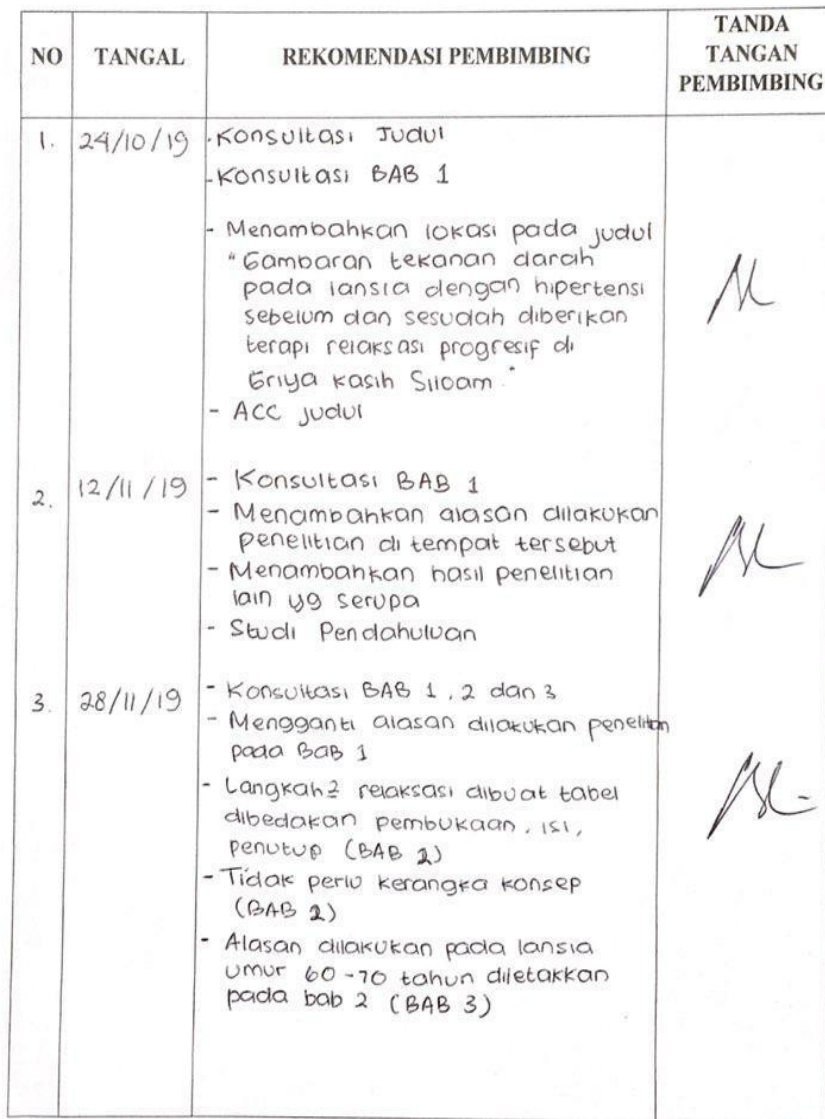 NO TANGAL REKOMENDASI PEMBIMBING TANDA TANGAN PEMBIMBING
1. 24/10/19 - Konsultasi Judul
- Konsultasi BAB 1
- Menambahkan lokasi pada judul
"Gambaran tekanan darah
pada lansia dengan hipertensi
sebelum dan sesudah diberikan
terapi relaksasi progresif di
Griya kasih Siloam."
- ACC judul
2. 12/11/19 - Konsultasi BAB 1
- Menambahkan alasan dilakukan
penelitian di tempat tersebut
- Menambahkan hasil penelitian
lain yg serupa
- Studi Pendahuluan
3. 28/11/19 - Konsultasi BAB 1, 2 dan 3
- Mengganti alasan dilakukan penelitian
pada BAB 1
- Langkah2 relaksasi dibuat tabel
dibedakan pembukaan, isi,
penutup (BAB 2)
- Tidak perlu kerangka konsep
(BAB 2)
- Alasan dilakukan pada lansia
umur 60-70 tahun diletakkan
pada bab 2 (BAB 3)